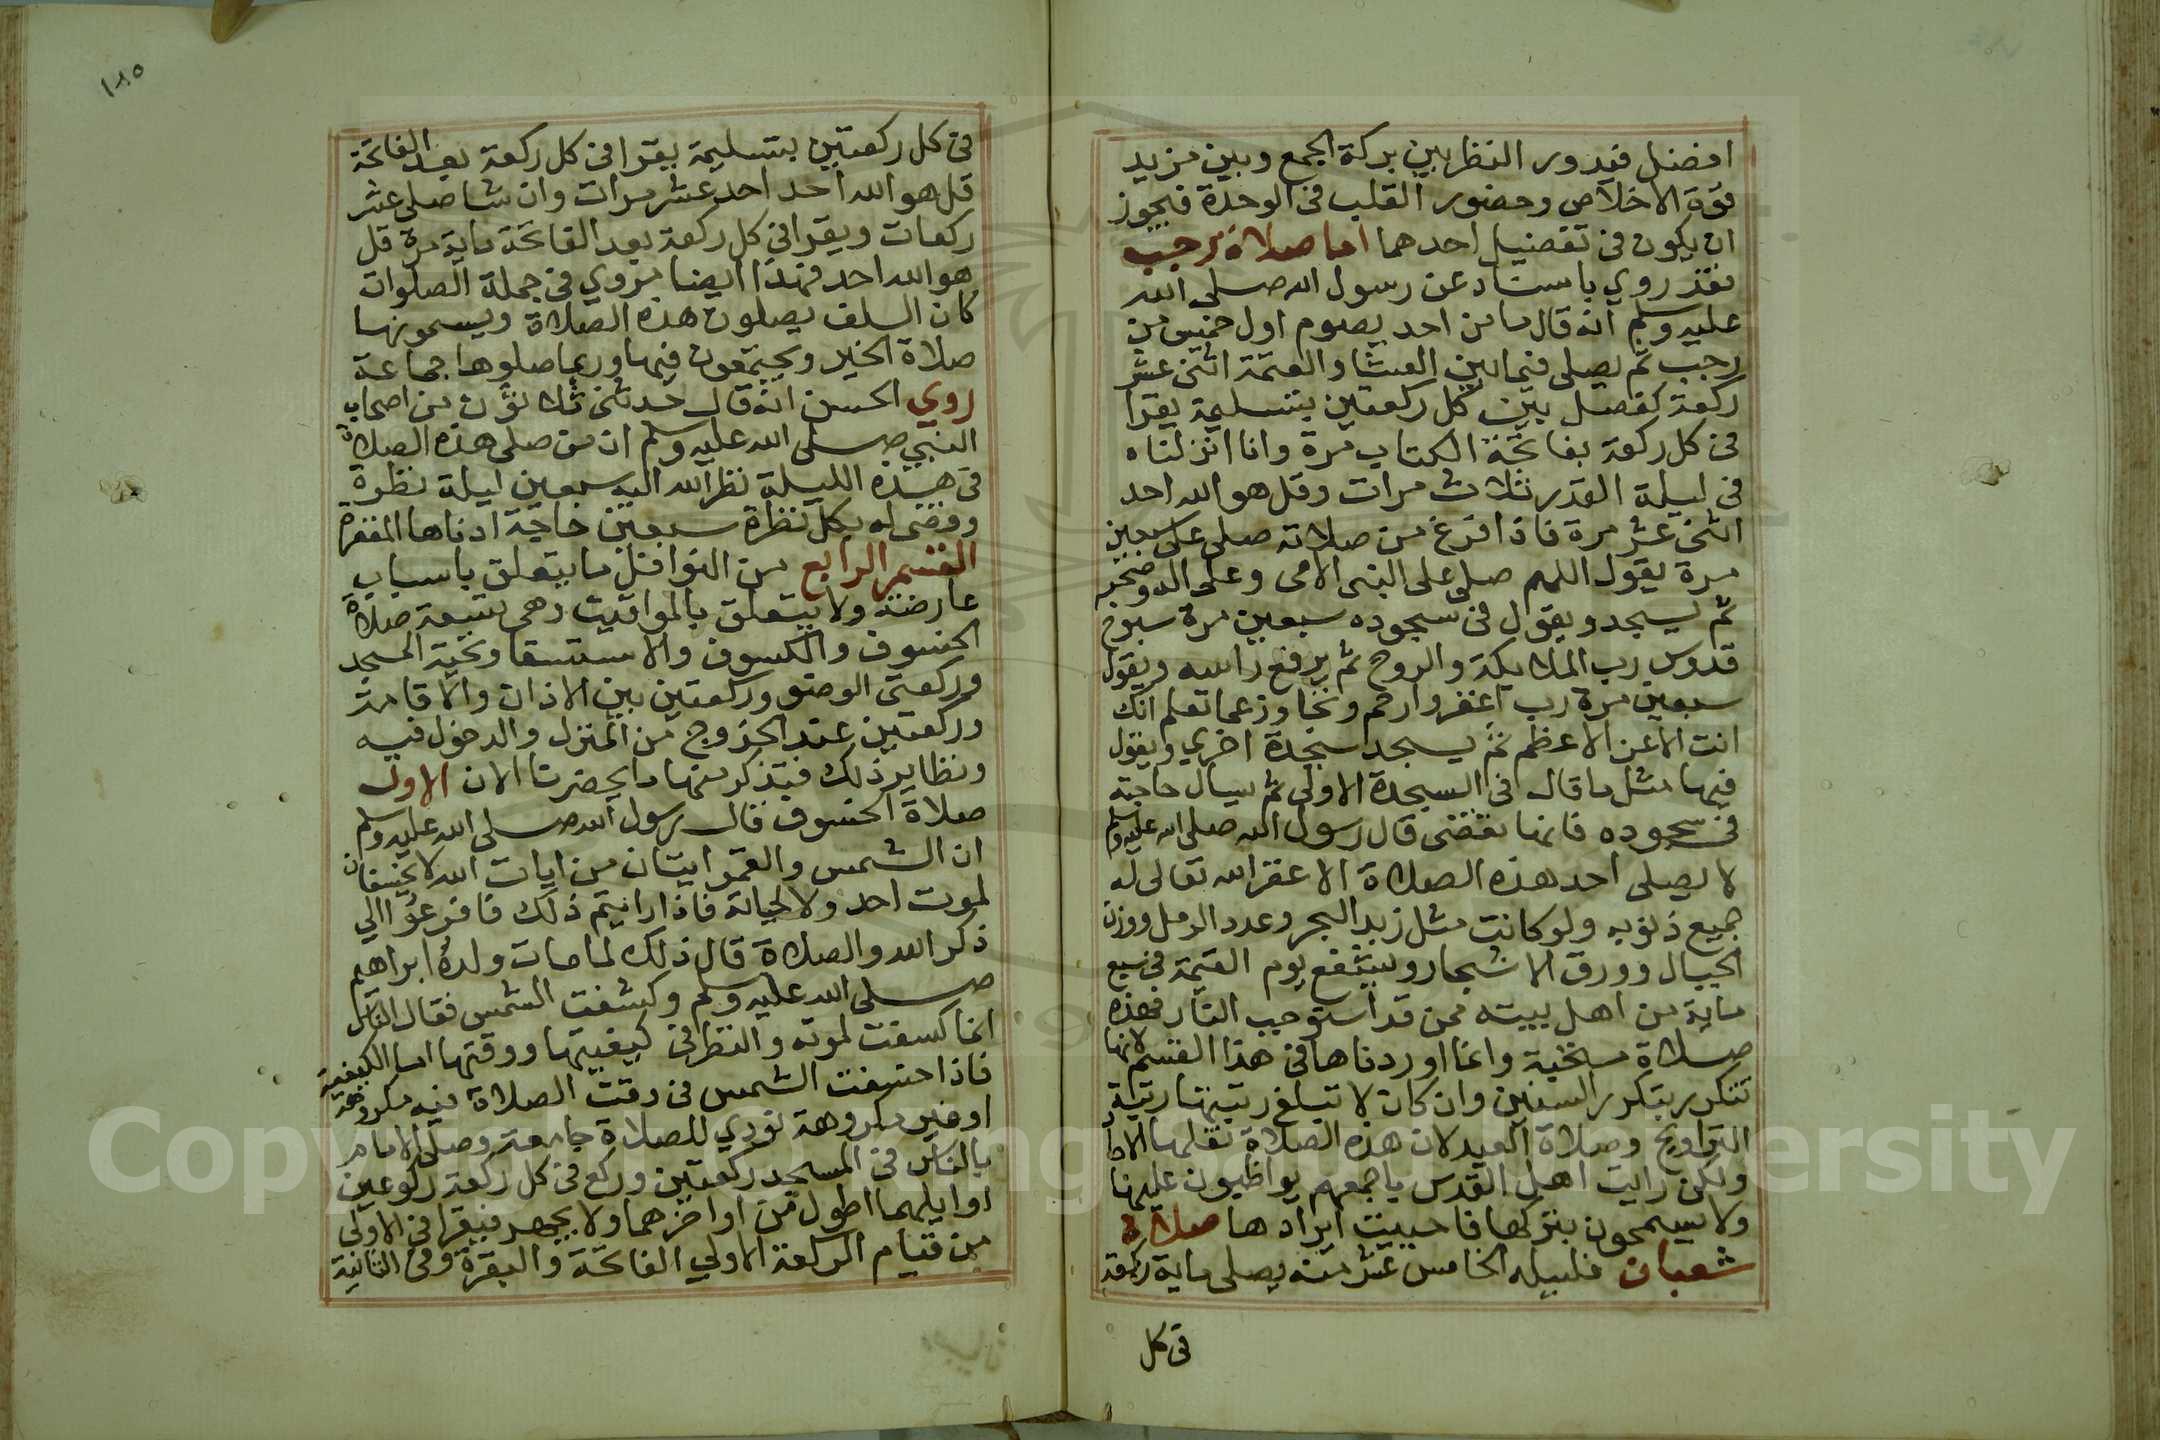 افضل فيدور النظر بين بركة الجمع وبين مزيد
قوة الاخلاص وحضور القلب في الوحدة فيجوز
ان يكون في تفضيل احدهما اما صلاة رجب
فقد روي باسناد عن رسول الله صلى الله
عليه وسلم انه قال ما من احد يصوم اول خميس من
رجب ثم يصلي فيما بين العشا والعتمة اثنى عشر
ركعة كفصل بين كل ركعتين بتسليمة يقرا
في كل ركعة بفاتحة الكتاب مرة وانا انزلناه
في ليلة القدر ثلاث مرات وقل هو الله احد
اثنى عشر مرة فاذا فرغ من صلاته صلى على سبعين
مرة يقول اللهم صلي على النبي الامي وعلى اله وصحبه
ثم يسجد ويقول في سجوده سبعين مرة سبوح
قدوس رب الملايكة والروح ثم يرفع راسه ويقول
سبعين مرة رب اغفر وارحم وتجاوز عما تعلم انك
انت الاعز الاعظم ثم يسجد سجدة اخري ويقول
فيها مثل ما قال في السجدة الاولى ثم يسال حاجته
في سجوده فانها تقضى قال رسول الله صلى الله عليه وسلم
لا يصلى احد هذه الصلاة الا غفر الله تعالى له
جميع ذنوبه ولو كانت مثل زبد البحر وعدد الرمل ووزن
الجبال وورق الاشجار ويشفع يوم القيمة في سبع
ماية من اهل بيته ممن قد استوجب النار فهذه
صلاة مستحبة وانما اوردناها في هذا القسم لانها
تتكرر بتكرر السنين وان كان لا تبلغ رتبتها رتبة
التراويح وصلاة العيد لان هذه الصلاة نقلها الاحاد
ولكن رايت اهل القدس باجمعهم يواظبون عليها
ولا يسمحون بتركها فاحببت ايرادها صلاة
شعبان فليله الخامس عشر منه يصلي ماية ركعة
في كل
١٨٥
في كل ركعتين بتسليمة يقرا في كل ركعة بعد الفاتحة
قل هو الله احد احد عشر مرات وان شا صلى عشر
ركعات ويقرا في كل ركعة بعد الفاتحة ماية مرة قل
هو الله احد فهذا ايضا مروي في جملة الصلوات
كان السلف يصلون هذه الصلاة ويسمونها
صلاة الخير ويجتمعون فيها وربما صلوها جماعة
روي الحسن انه قال حدثني ثلاثون من اصحاب
النبي صلى الله عليه وسلم ان من صلى هذه الصلاة
في هذه الليلة نظر الله اليه سبعين ليلة نظرة
وقضى له بكل نظرة سبعين حاجة ادناها المغفرة
القسم الرابع من النوافل ما يتعلق باسباب
عارضة ولا يتعلق بالمواقيت وهي تسعة صلاة
الخسوف والكسوف والاستسقا وتحية المسجد
وركعتي الوضو وركعتين بين الاذان والاقامة
وركعتين عند الخروج من المنزل والدخول فيه
ونظاير ذلك فنذكر منها ما يحضرنا الان الاول
صلاة الخسوف قال رسول الله صلى الله عليه وسلم
ان الشمس والقمر ايتان من ايات الله لا يخسفان
لموت احد ولا لحياته فاذا رايتم ذلك فافزعوا الي
ذكر الله والصلاة قال ذلك لما مات ولده ابراهيم
صلى الله عليه وسلم وكشفت الشمس فقال الناس
انما كسفت لموته والنظر في كيفيتها ووقتها اما الكيفية
فاذا خسفت الشمس في وقت الصلاة فيه مكروهة
او غير مكروهة نودي للصلاة جامعة وصلى الامام
بالناس في المسجد ركعتين وركع في كل ركعة ركوعين
اوايلهما اطول من اواخرهما ولا يجهر فيقرا في الاولى
من قيام الركعة الاولي الفاتحة والبقرة وفي الثانية